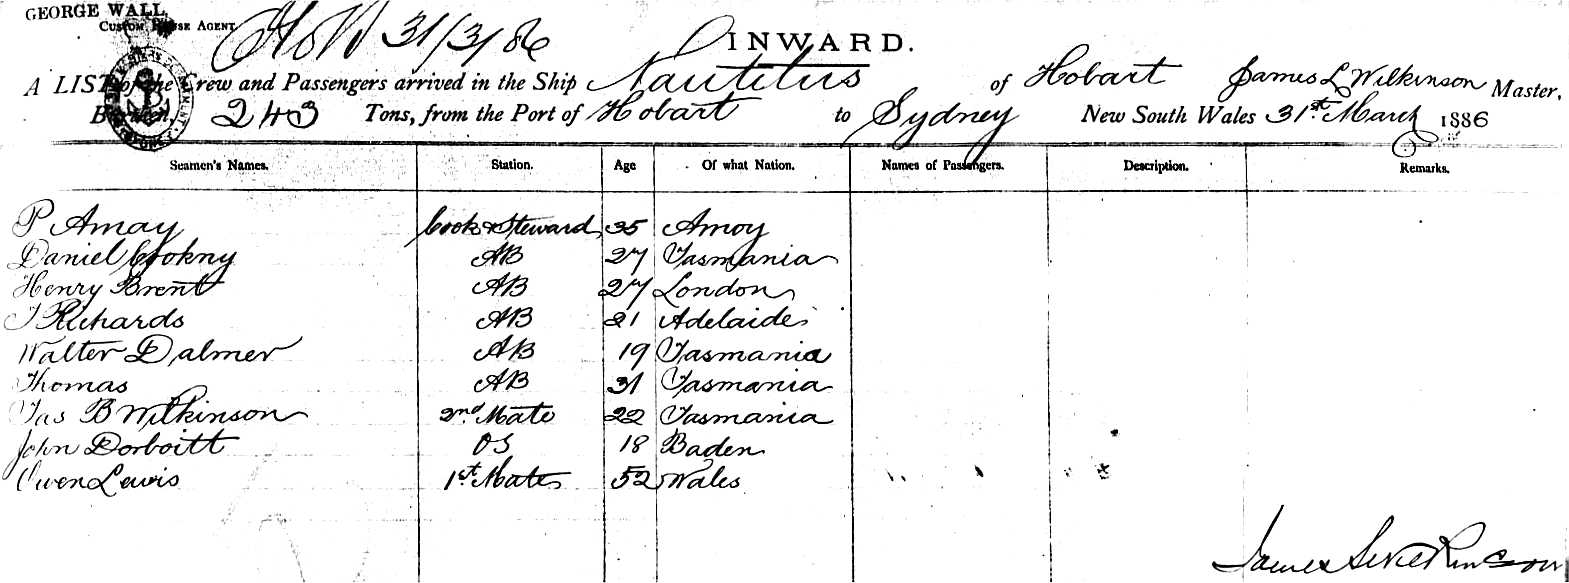 GEORGE WALL,
CUSTOM HOUSE AGENT
31/3/86
INWARD.
A LIST of the Crew and Passengers arrived in the Ship Nautilus of Hobart James L Wilkinson Master,
Burthen, 243 Tons, from the Port of Hobart to Sydney New South Wales 31st March 1886
Seamen's Names. Station. Age Of what Nation. Names of Passengers. Description. Remarks.
P Amay Cook & Steward 35 Amoy
Daniel Cookny AB 27 Tasmania
Henry Brent AB 27 London
T Richards AB 21 Adelaide
Walter Dalmer AB 19 Tasmania
Thomas AB 31 Tasmania
Jas B Wilkinson 2nd Mate 22 Tasmania
John Dorboitt OS 18 Baden
Owen Lewis 1st Mate 52 Wales
James L Wilkinson